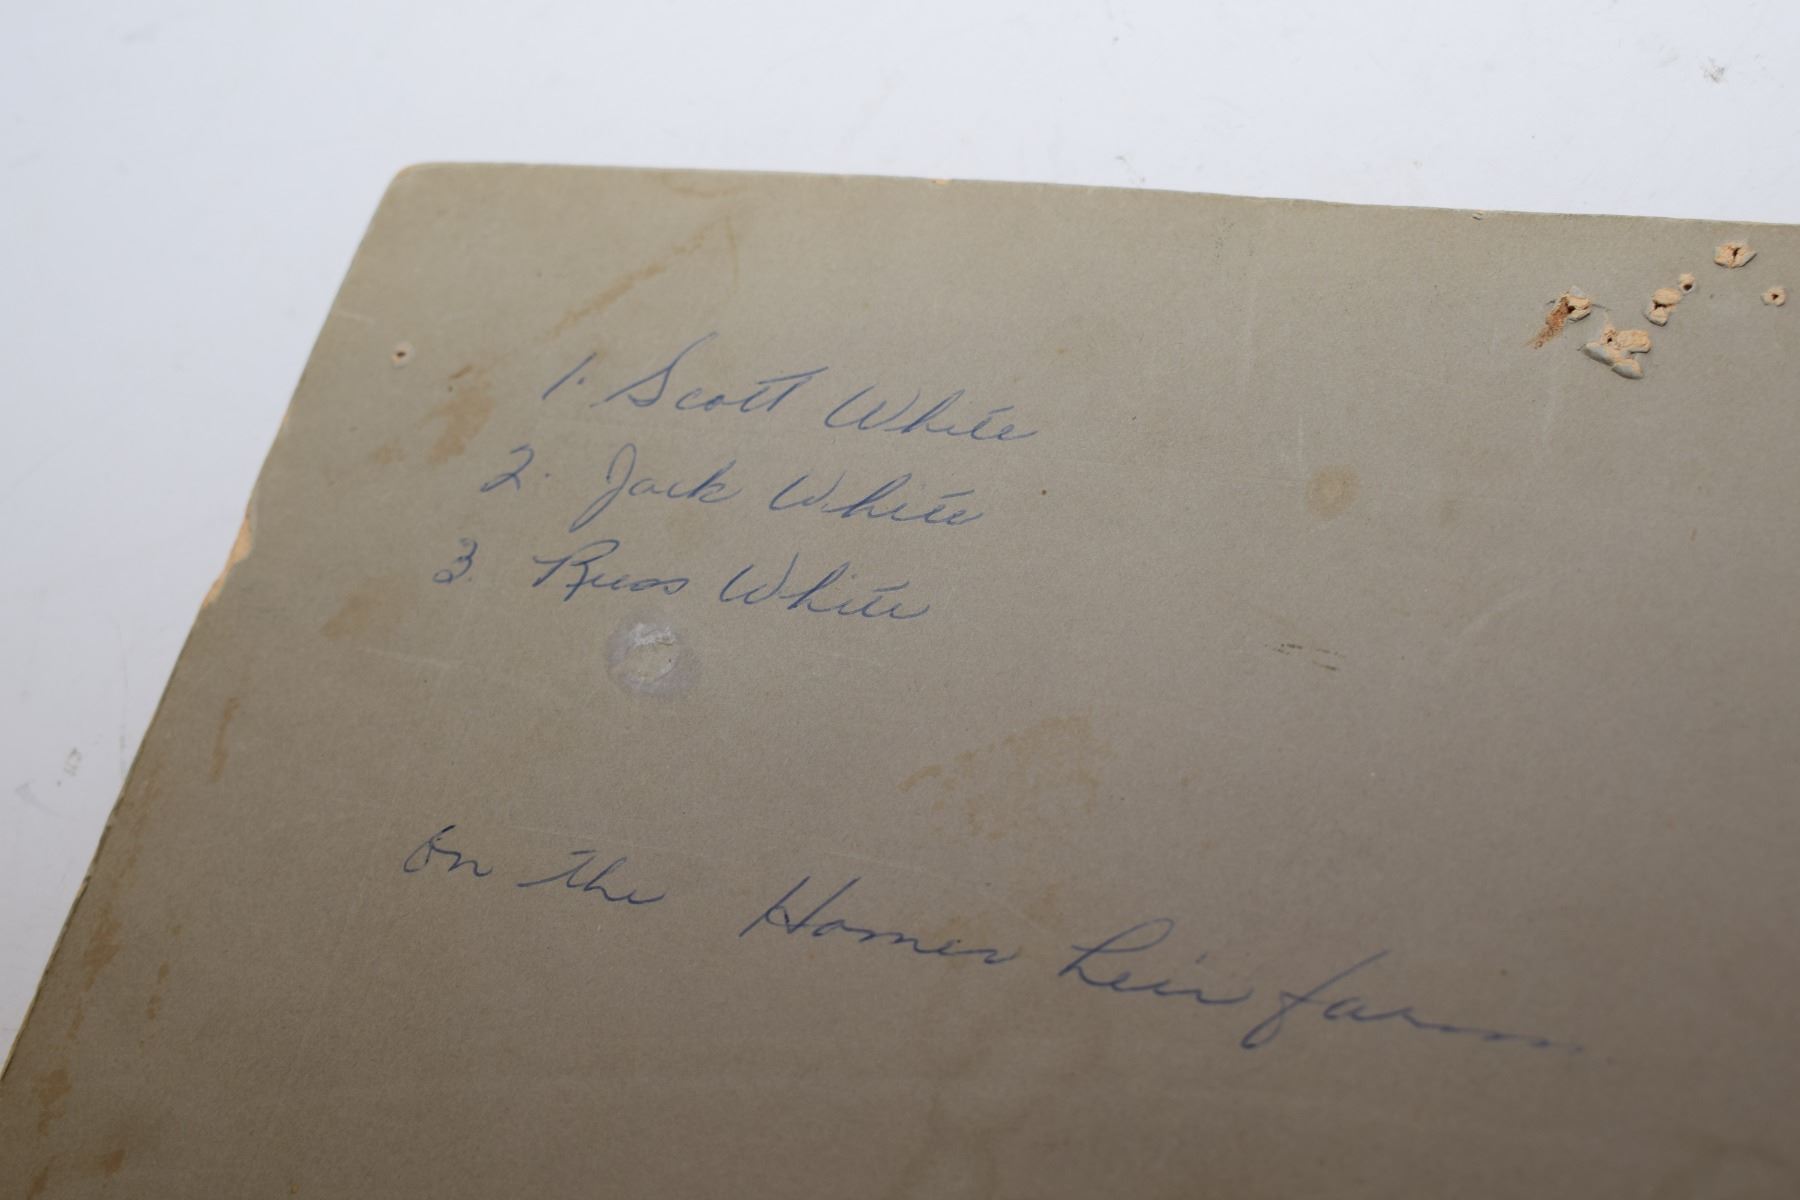 1. Scott White
2. Jack White
3. Russ White
On the Homer Heir farm